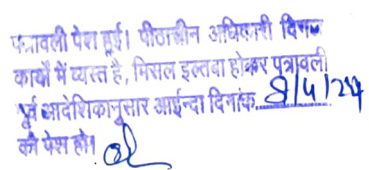 पत्रावली पेश हुई। पीठासीन अधिकारी विभिन्न
कार्यों में व्यस्त है, मिसल इल्तवा होकर पत्रावली
पूर्व आदेशिकानुसार आईन्दा दिनांक 8/4/24
को पेश हो।